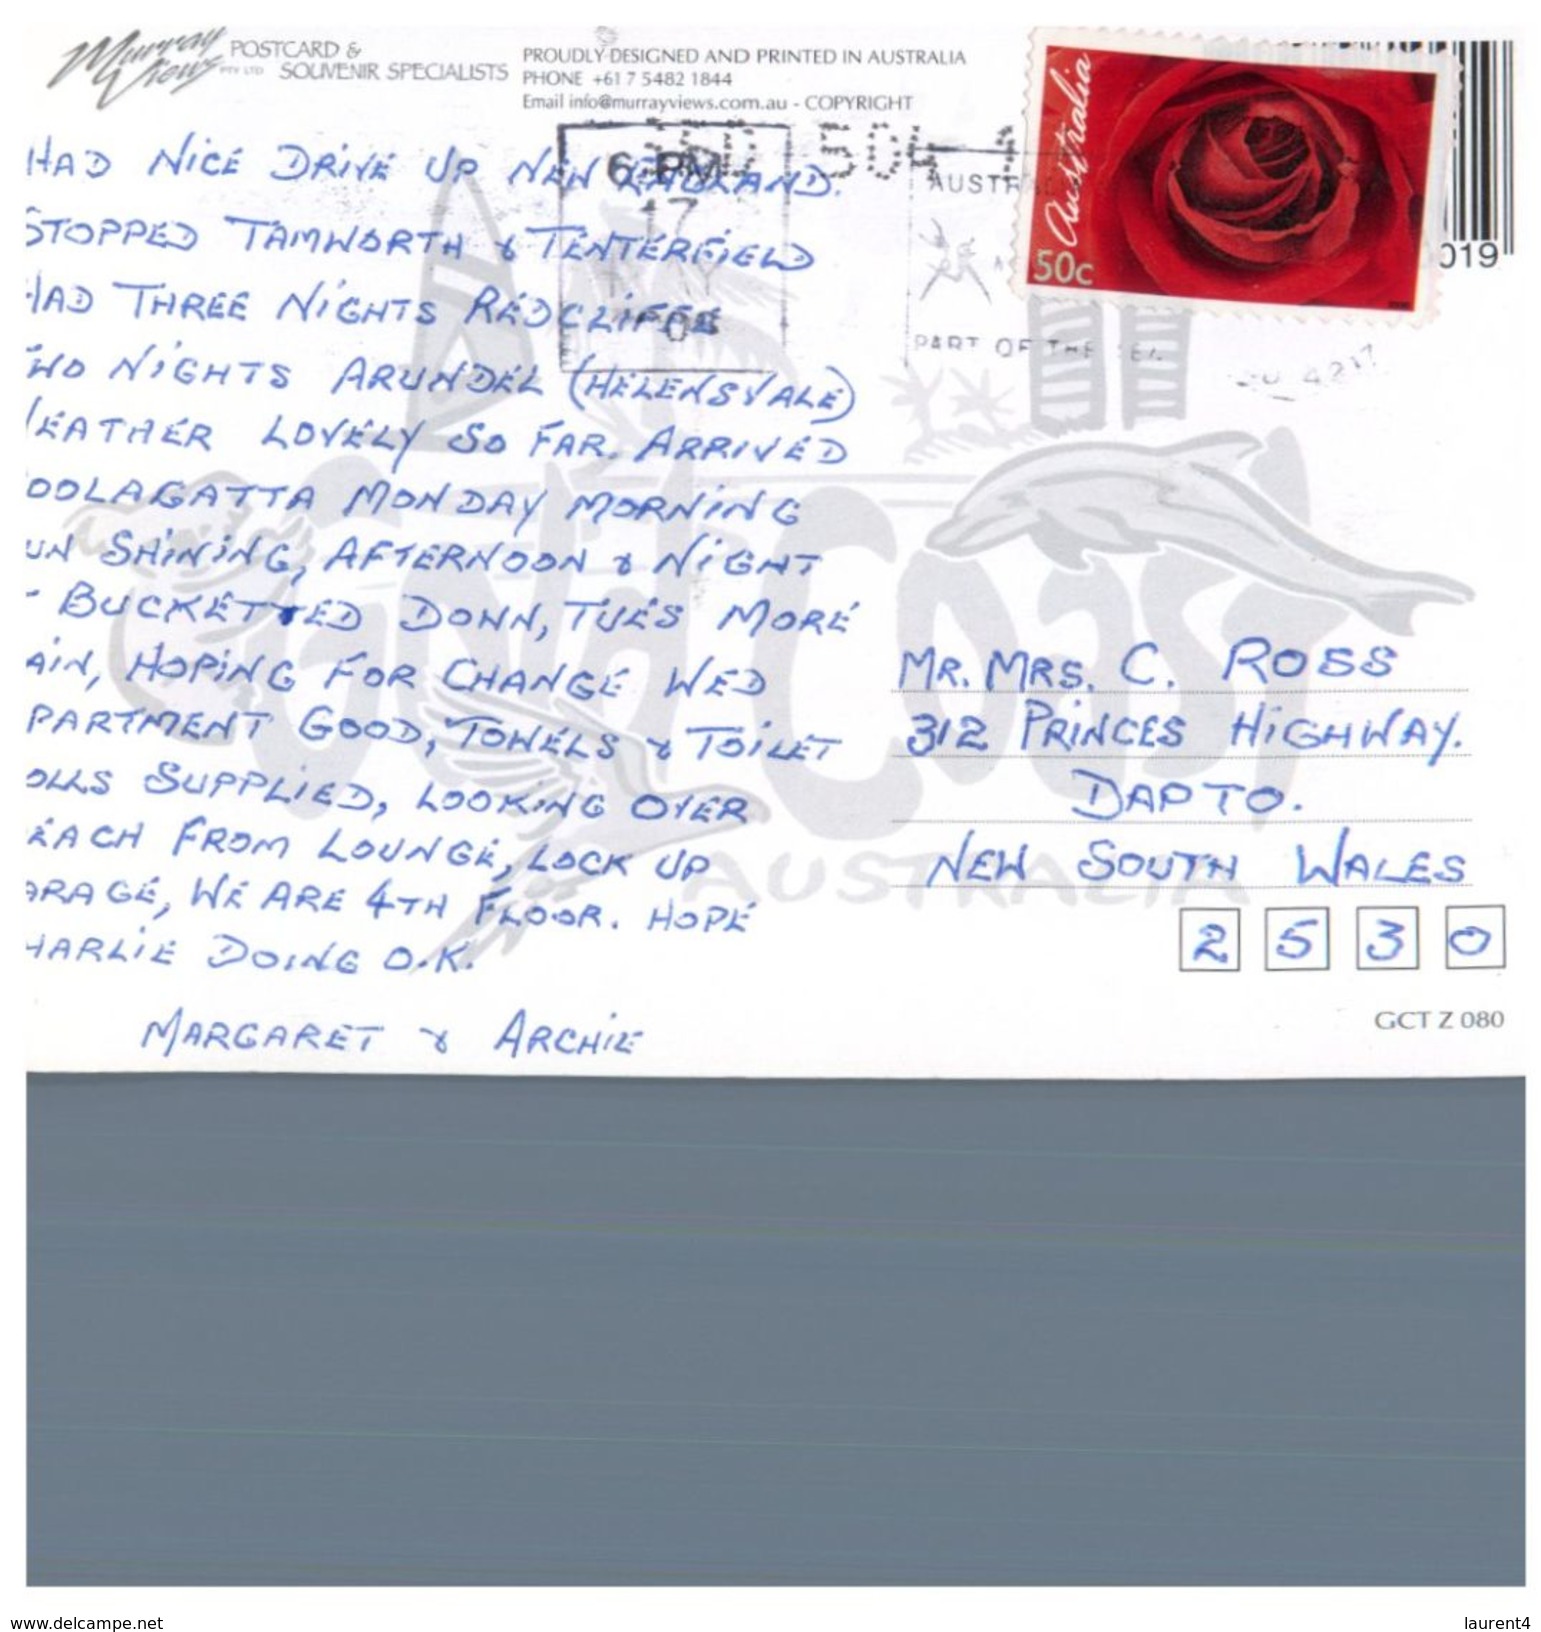 Murray Views PTY LTD
POSTCARD & SOUVENIR SPECIALISTS
PROUDLY DESIGNED AND PRINTED IN AUSTRALIA
PHONE +61 7 5482 1844
Email info@murrayviews.com.au - COPYRIGHT
Australia
50c
019
6 PM
17
AUSTR
PART OF THE
HAD NICE DRIVE UP NEW ENGLAND.
STOPPED TAMWORTH & TENTERFIELD
HAD THREE NIGHTS REDCLIFFE
TWO NIGHTS ARUNDEL (HELENSVALE)
WEATHER LOVELY SO FAR. ARRIVED
OOLAGATTA MONDAY MORNING
UN SHINING, AFTERNOON & NIGHT
BUCKETTED DOWN, TUES MORE
AIN, HOPING FOR CHANGE WED
PARTMENT GOOD, TOWELS & TOILET
OLLS SUPPLIED, LOOKING OVER
EACH FROM LOUNGE, LOCK UP
ARAGE, WE ARE 4TH FLOOR. HOPE
HARLIE DOING O.K.
MARGARET & ARCHIE
Gold Coast
AUSTRALIA
MR. MRS. C. ROSS
312 PRINCES HIGHWAY.
DAPTO.
NEW SOUTH WALES
2530
GCT Z 080
www.delcampe.net
laurent4